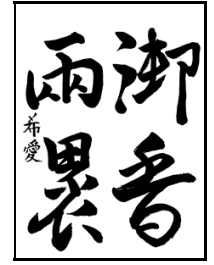 御香
両畏
希愛